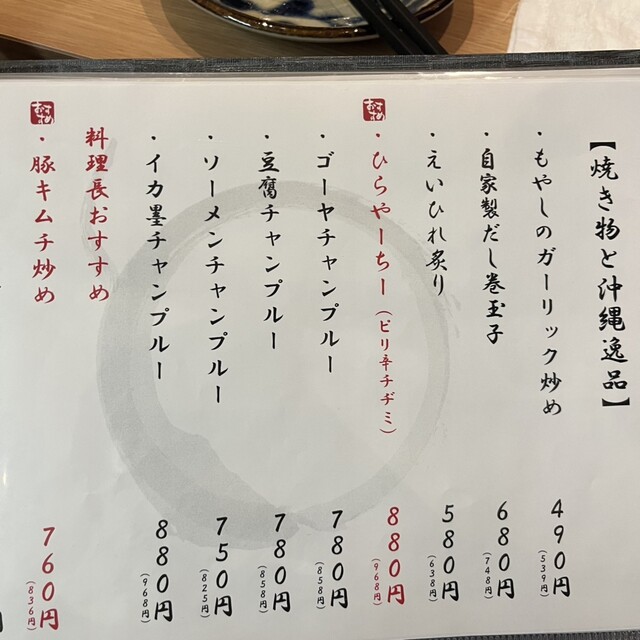 【焼き物と沖縄逸品】
・もやしのガーリック炒め 490円(539円)
・自家製だし巻玉子 680円(748円)
・えいひれ炙り 580円(638円)
おすすめ
・ひらやーちー(ピリ辛チヂミ) 880円(968円)
・ゴーヤチャンプルー 780円(858円)
・豆腐チャンプルー 780円(858円)
・ソーメンチャンプルー 750円(825円)
・イカ墨チャンプルー 880円(968円)
料理長おすすめ
おすすめ
・豚キムチ炒め 760円(836円)